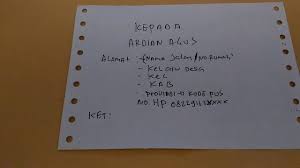 KEPADA
ARDIAN AGUS
ALAMAT: (NAMA JALAN/NO RUMAH)
- KEL ATAU DESA
- KEC
- KAB
- PROVINSI KODE POS
NO. HP
KET: